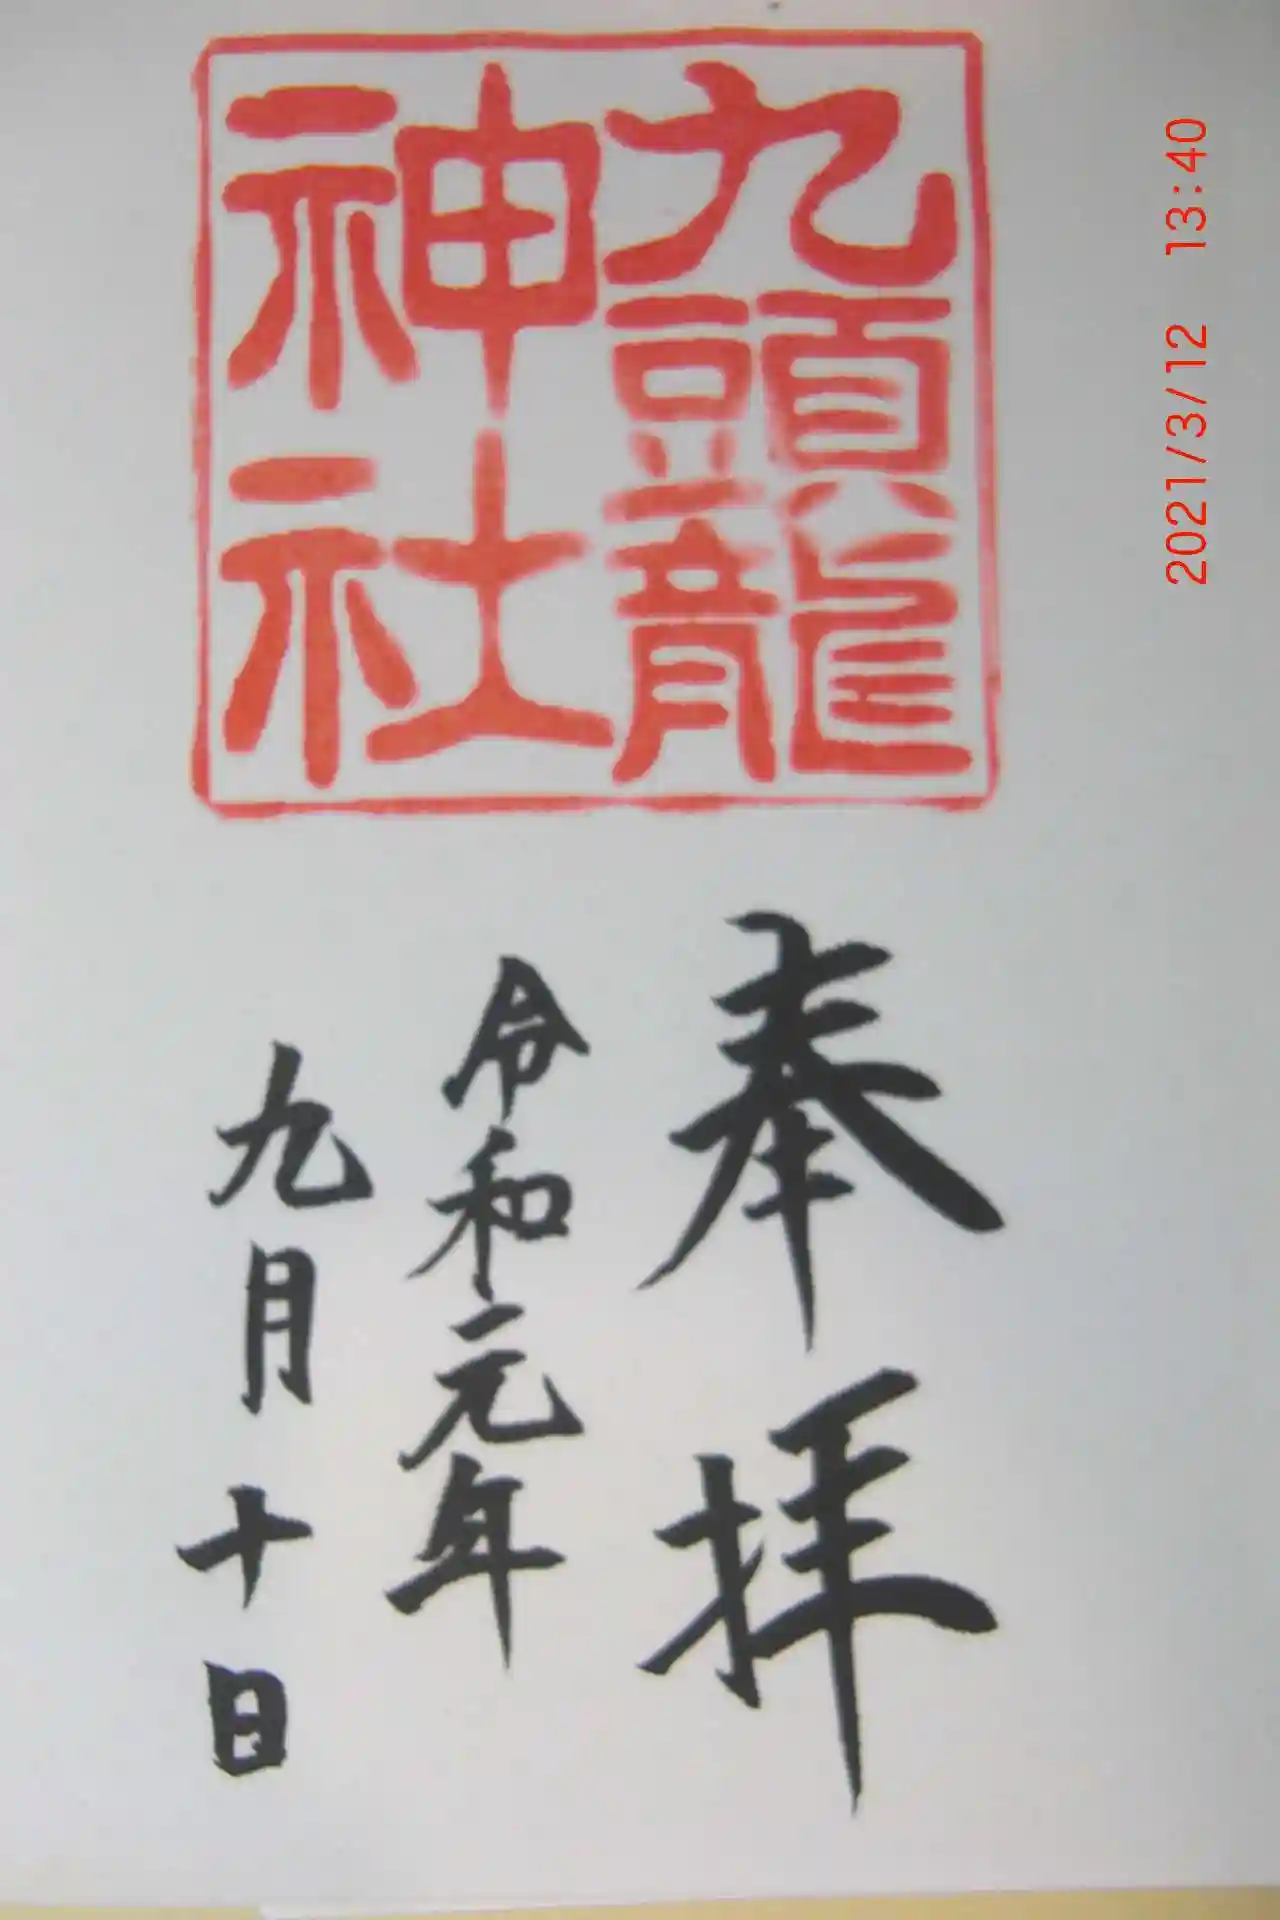 九頭龍
神社
奉拝
令和元年
九月十日
2021/3/12 13:40